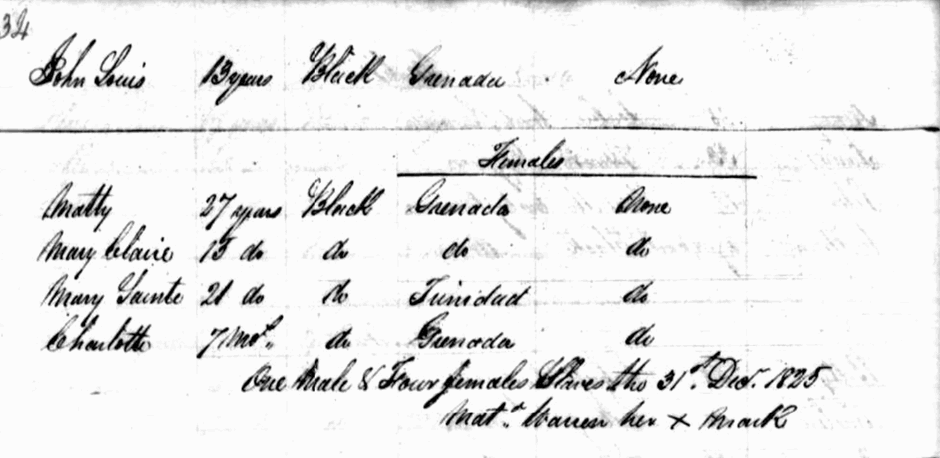 34
John Louis 13 years Black Grenada None
Females
Matty 27 years Black Grenada None
Mary Claire 15 do do do do
Mary Sainte 21 do do Trinidad do
Charlotte 7 Mos. do Grenada do
One Male & Four females Slaves this 31st Decr. 1825
Mata. Warren her X Mark